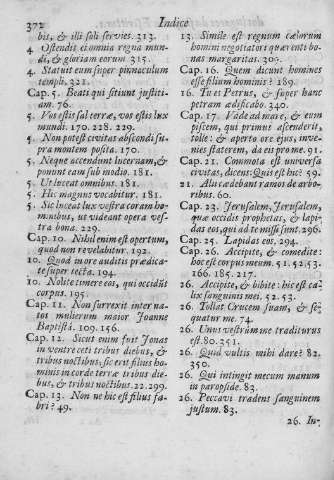 372
Indice
bis, & illi soli servies. 313.
4. Ostendit ei omnia regna mun-
di, & gloriam eorum 315.
4. Statuit eum super pinnaculum
templi. 321.
Cap. 5. Beati qui sitiunt justiti-
am. 76.
5. Vos estis sal terræ, vos estis lux
mundi. 170. 228. 229.
5. Non potest civitas abscondi su-
pra montem posita. 170.
5. Neque accendunt lucernam, &
ponunt eam sub modio. 181.
5. Ut luceat omnibus. 181.
5. Hic magnus vocabitur. 181.
5. Sic luceat lux vestra coram ho-
minibus, ut videant opera ves-
tra bona. 229.
Cap. 10. Nihil enim est opertum,
quod non revelabitur. 192.
10. Quod in aure auditis prædica-
te super tecta. 194.
10. Nolite timere eos, qui occidūt
corpus. 195.
Cap. 11. Non surrexit inter na-
tos mulierum maior Joanne
Baptistâ. 109. 156.
Cap. 12. Sicut enim fuit Jonas
in ventre ceti tribus diebus, &
tribus noctibus; sic erit filius ho-
minis in corde terræ tribus die-
bus, & tribus noctibus. 22. 299.
Cap. 13. Non ne hic est filius fa-
bri? 49.
13. Simile est regnum cælorum
homini negotiatori quærenti bo-
nas margaritas. 309.
Cap. 16. Quem dicunt homines
esse filium hominis? 189.
16. Tu es Petrus, & super hanc
petram ædificabo. 340.
Cap. 17. Vade ad mare, & eum
piscem, qui primus ascenderit,
tolle: & aperto ore ejus, inve-
nies staterem, da eis pro me. 91.
Cap. 21. Commota est universa
civitas, dicens: Quis est hic? 59.
21. Alii cædebant ramos de arbo-
ribus. 60.
Cap. 23. Jerusalem, Jerusalem,
quæ occidis prophetas, & lapi-
das eos, qui ad te missi sunt. 296.
Cap. 25. Lapidas eos. 294.
Cap. 26. Accipite, & comedite:
hoc est corpus meum. 51. 52. 53.
166. 185. 217.
26. Accipite, & bibite: hic est ca-
lix sanguinis mei. 52. 53.
26. Tollat Crucem suam, & seq̃
quatur me. 74.
26. Unus vestrûm me traditurus
est. 80. 351.
26. Quid vultis mihi dare? 82.
350.
26. Qui intingit mecum manum
in paropside. 83.
26. Peccavi tradens sanguinem
justum. 83.
26. In-